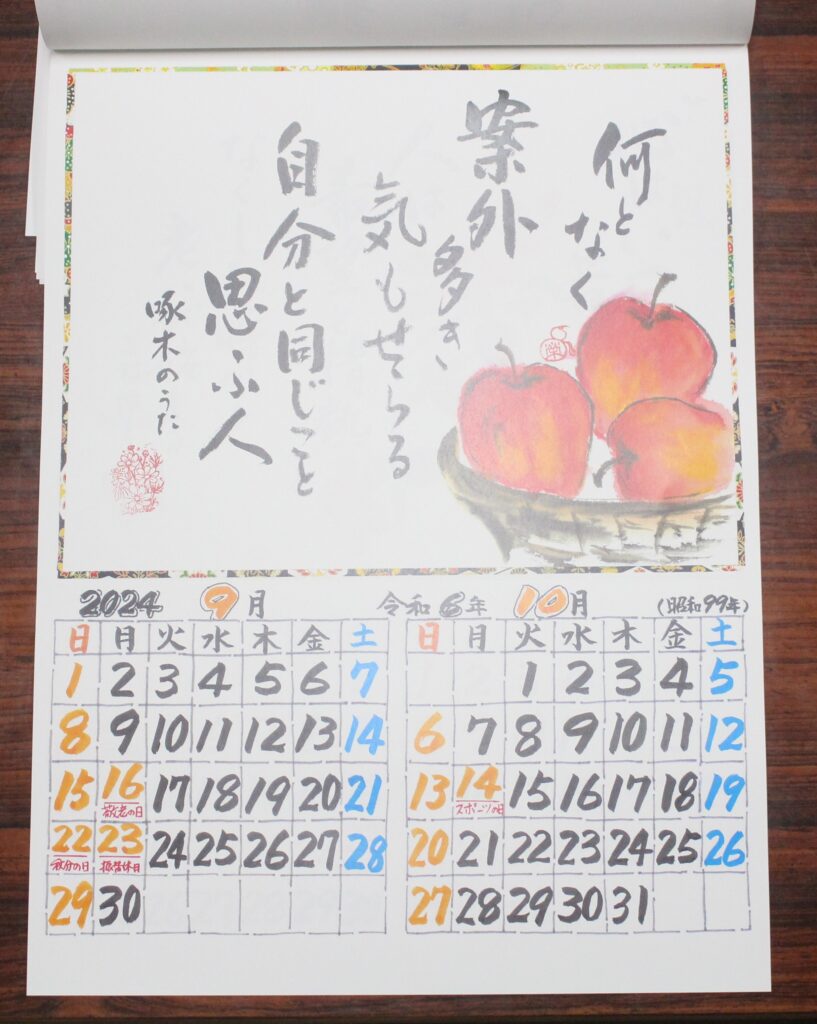 何となく
案外
多き
気もせらる
自分と同じこと
思ふ人
啄木のうた
2024 9月 令和6年 10月 (昭和99年)
日 月 火 水 木 金 土
1 2 3 4 5 6 7
8 9 10 11 12 13 14
15 16 17 18 19 20 21
敬老の日
22 23 24 25 26 27 28
秋分の日 振替休日
29 30
日 月 火 水 木 金 土
1 2 3 4 5
6 7 8 9 10 11 12
13 14 15 16 17 18 19
スポーツの日
20 21 22 23 24 25 26
27 28 29 30 31